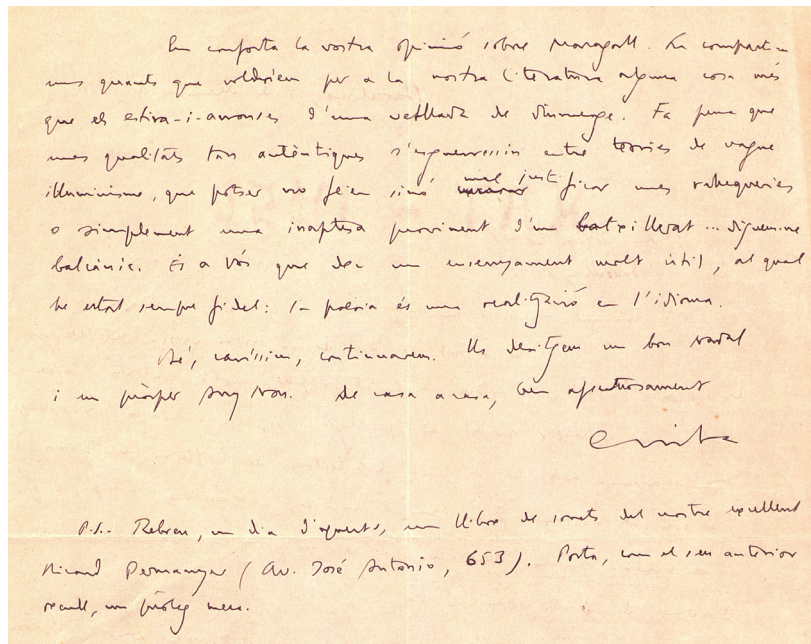 Em conforta la vostra opinió sobre Maragall. La compartim
uns quants que voldríem per a la nostra literatura alguna cosa més
que els estira-i-arronses d'una vetllada de diumenge. Fa pena que
unes qualitats tan autèntiques s'esguerressin entre teories de vague
il·luminisme, que potser no feien sinó mal justificar unes rabequeries
o simplement una inaptesa provinent d'un batxillerat... diguem-ne
balcànic. És a Vós que dec un ensenyament molt útil, al qual
he estat sempre fidel: la poesia és una realització en l'idioma.
Bé, caríssim, continuarem. Us desitgem un bon Nadal
i un pròsper Any Nou. De casa a casa, ben afectuosament
P.S.- Rebreu, un dia d'aquests, un llibre de sonets del nostre excellent
Ricard Permanyer (Av. José Antonio, 653). Porta, com el seu anterior
recull, un pròleg meu.